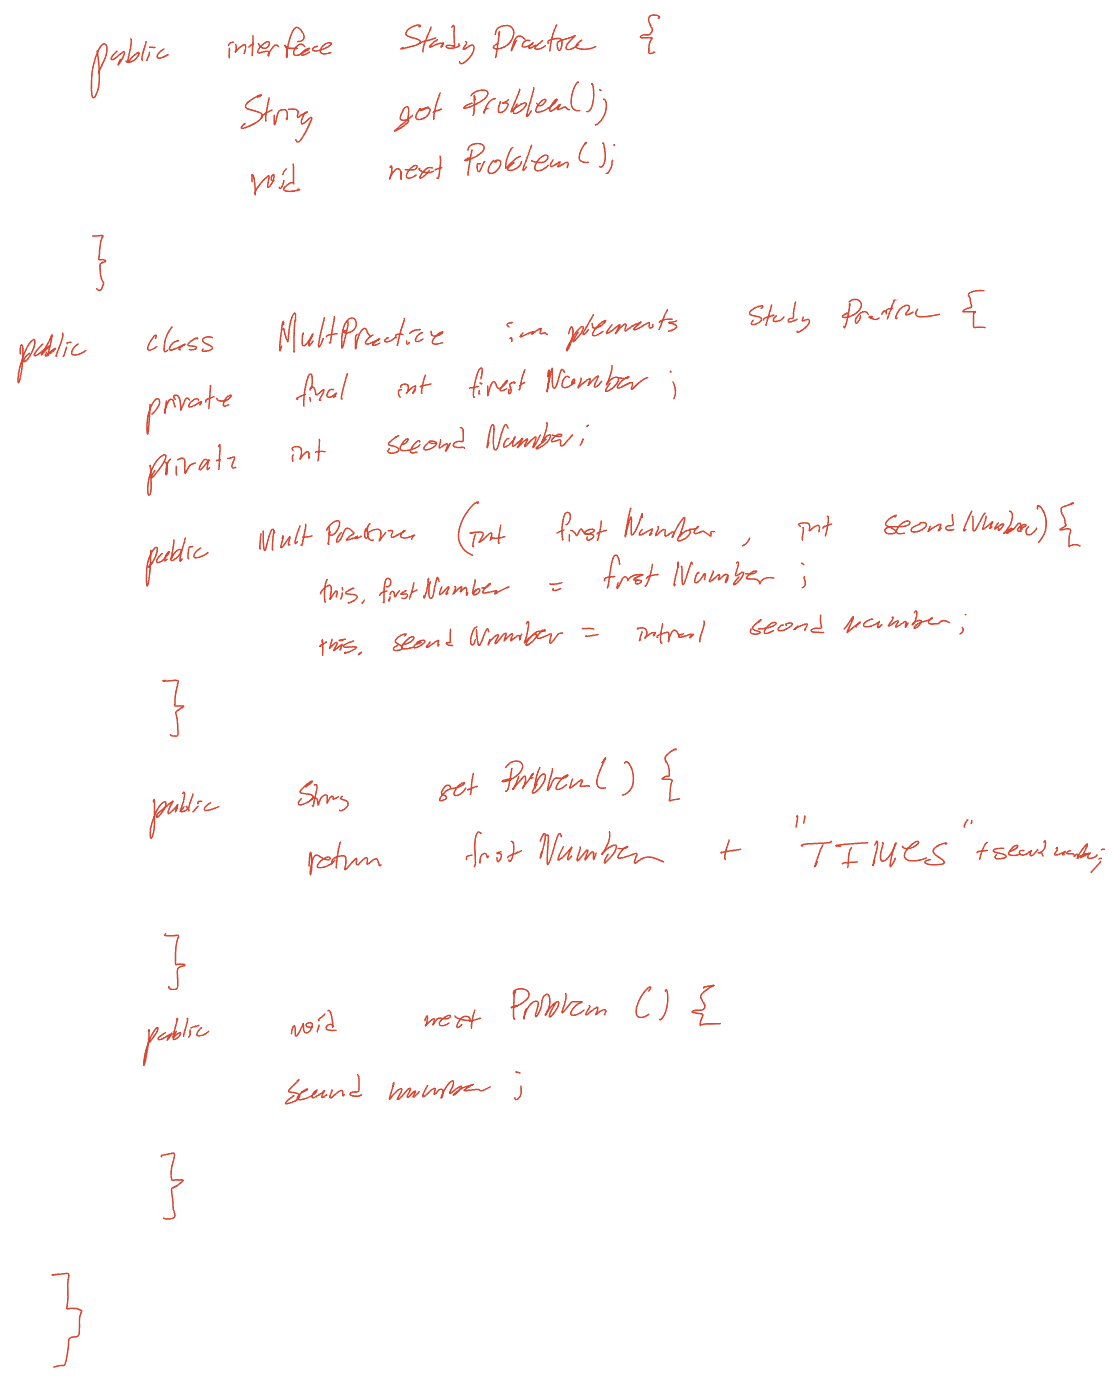 public interface StudyPractice {
String getProblem();
void nextProblem();
}
public class MultPractice implements StudyPractice {
private final int firstNumber;
private int secondNumber;
public MultPractice (int firstNumber, int secondNumber) {
this.firstNumber = firstNumber;
this.secondNumber = second number;
}
public String getProblem() {
return firstNumber + "TIMES" + second number;
}
public void nextProblem () {
second number;
}
}